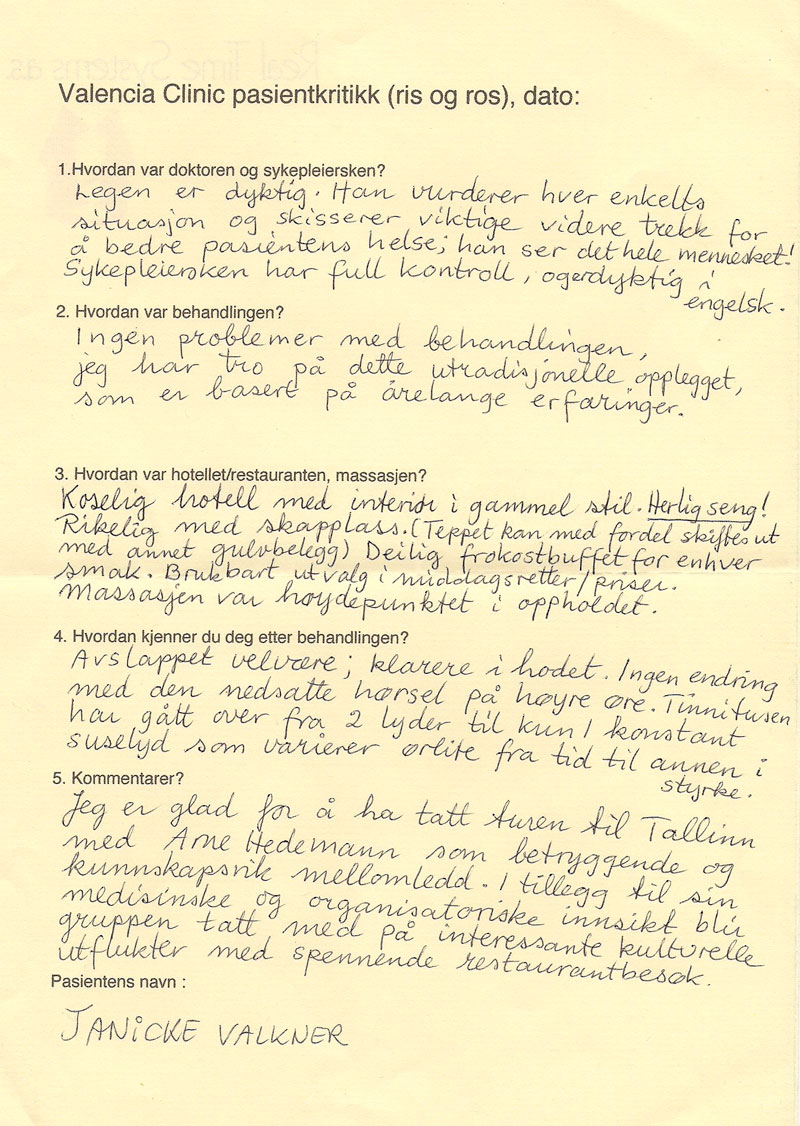 Real Time Systems a.s.
Valencia Clinic pasientkritikk (ris og ros), dato:
1.Hvordan var doktoren og sykepleiersken?
Legen er dyktig. Han vurderer hver enkelts
situasjon og skisserer viktige videre trekk for
å bedre pasientens helse; han ser det hele mennesket!
Sykepleiersken har full kontroll, og er dyktig i
engelsk.
2. Hvordan var behandlingen?
Ingen problemer med behandlingen,
jeg har tro på dette utradisjonelle opplegget,
som er basert på årelange erfaringer.
3. Hvordan var hotellet/restauranten, massasjen?
Koselig hotell med interiør i gammel stil. Herlig seng!
Rikelig med skapplass. (Teppet kan med fordel skiftes ut
med annet gulvbelegg) Deilig frokostbuffet for enhver
smak. Brukbart utvalg i middagsretter/priser.
Massasjen var høydepunktet i oppholdet.
4. Hvordan kjenner du deg etter behandlingen?
Avslappet velvære; klarere i hodet. Ingen endring
med den nedsatte hørsel på høyre øre. Tinnitusen
har gått over fra 2 lyder til kun 1 konstant
suselyd som varierer ørlite fra tid til annen i
styrke.
5. Kommentarer?
Jeg er glad for å ha tatt turen til Tallinn
med Arne Hedemann som betryggende og
kunnskapsrik mellomledd. I tillegg til sin
medisinske og organisatoriske innsikt blir
gruppen tatt med på interessante kulturelle
utflukter med spennende restaurantbesøk.
Pasientens navn :
JANICKE VALKNER